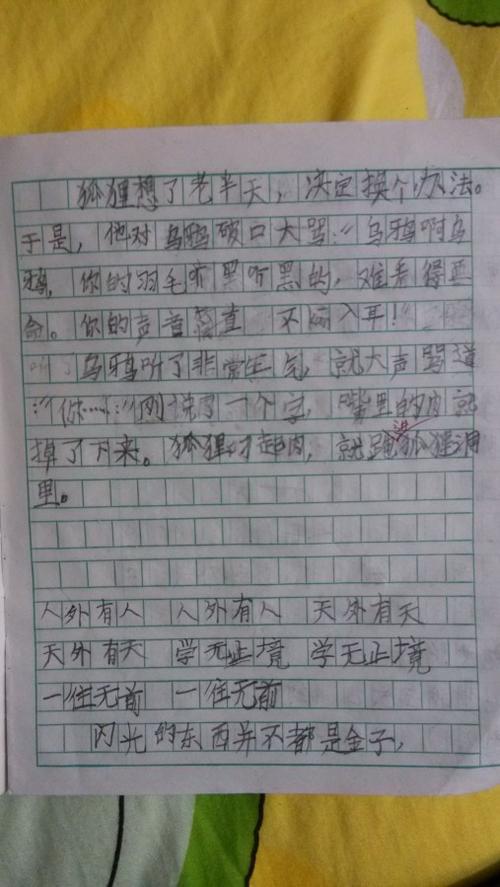 狐狸想了老半天，决定换个办法。
于是，他对乌鸦破口大骂：“乌鸦啊乌
鸦，你的羽毛听黑听黑的，难看得要
命。你的声音简直 不丽入耳！
听了乌鸦听了非常生气，就大声骂道
：“你……”刚说了一个字，嘴里的肉就
掉了下来。狐狸叼起肉，就跑进狐狸洞
里。
人外有人 人外有人 天外有天
天外有天 学无止境 学无止境
一往无前 一往无前
闪光的东西并不都是金子，